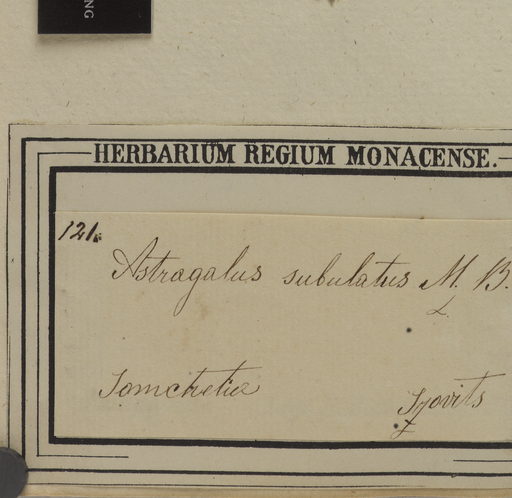 NG
HERBARIUM REGIUM MONACENSE.
121.
Astragalus subulatus M. B.
Somchetia Szovits